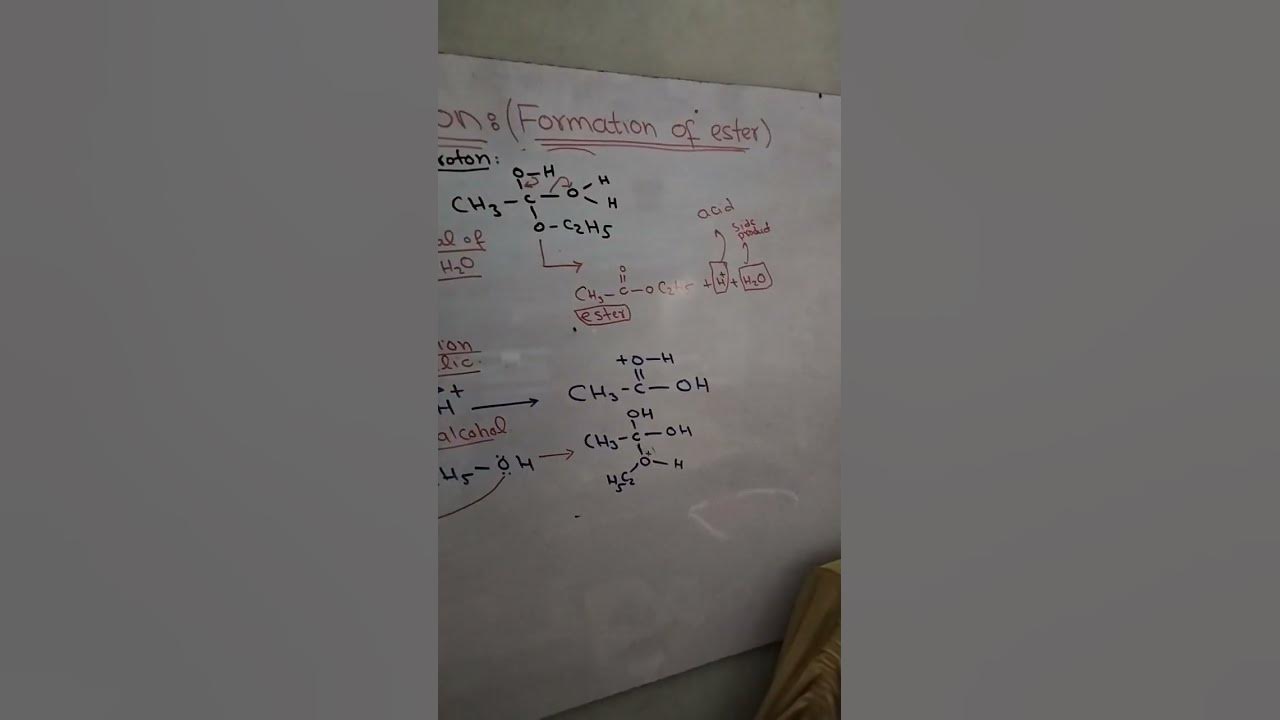 on: (Formation of ester)
roton:
O-H
CH3-C-O
H
H
O-C2H5
al of
H2O
acid
side
product
O
CH3-C-OC2H5 + H+ + H2O
ester
ion
lic.
+O-H
CH3-C-OH
+
H →
alcohol
OH
CH3-C-OH
H5-ÖH →
O+-H
H5C2